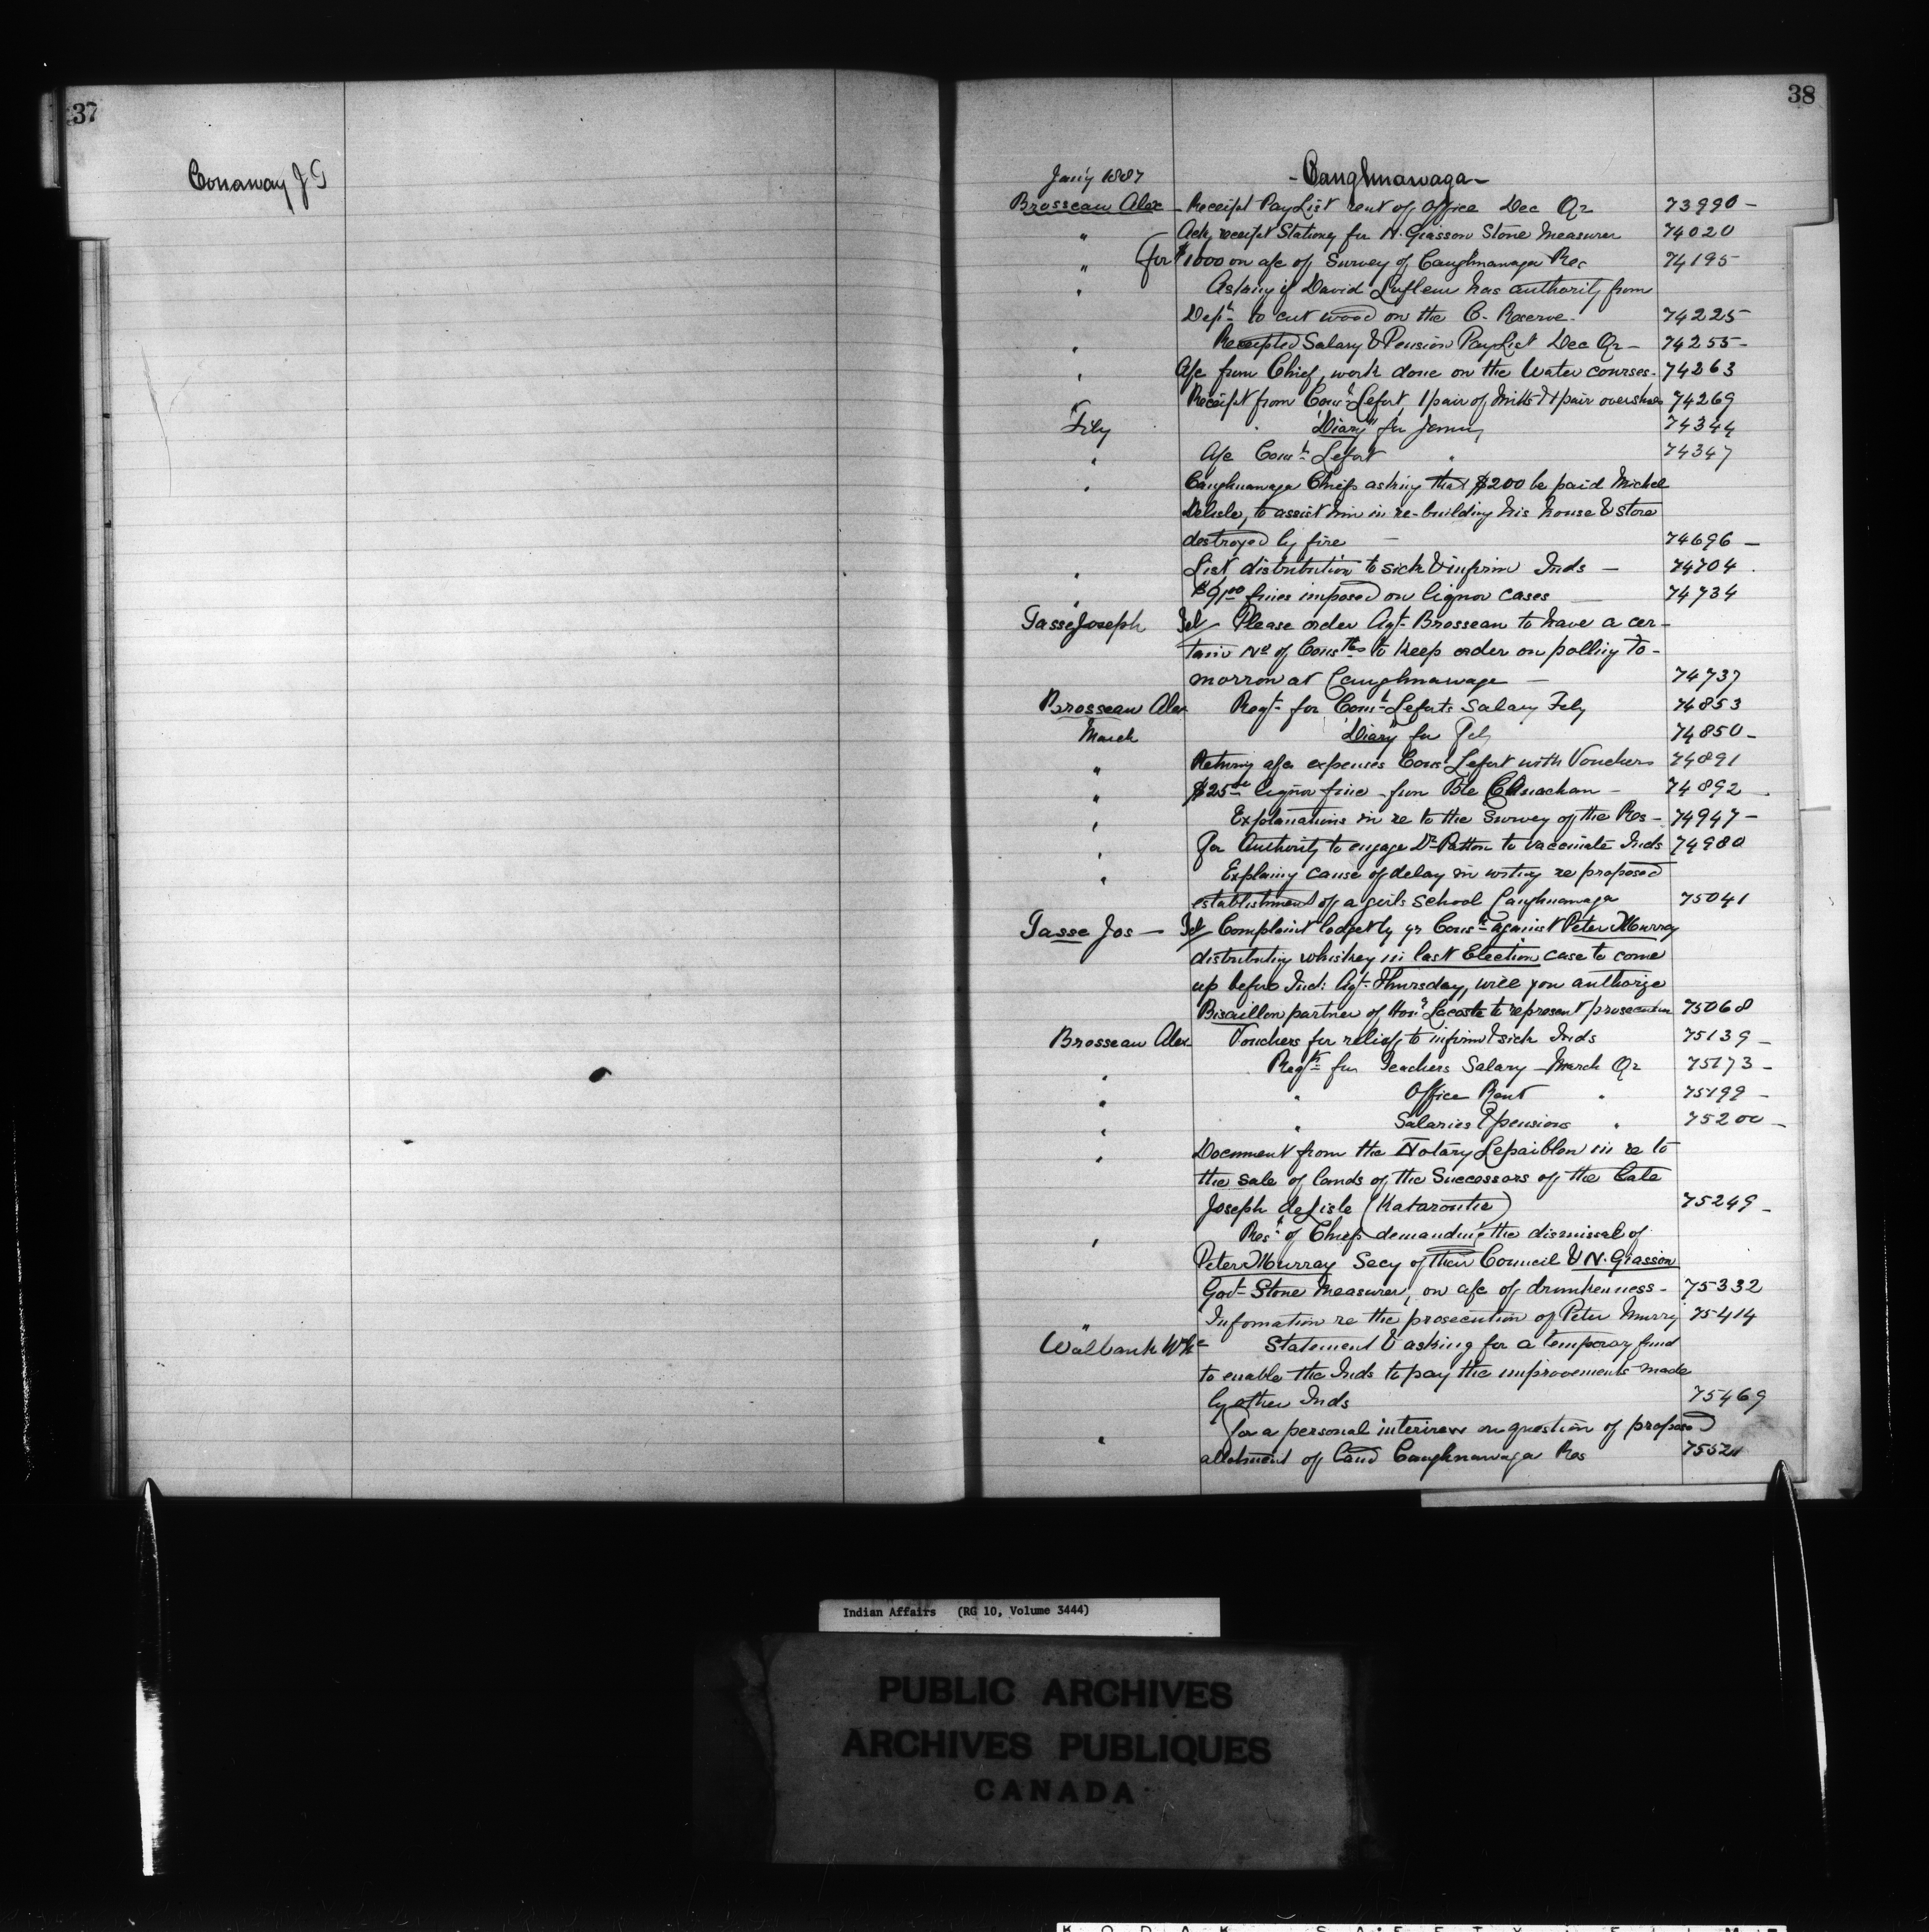 37
Conaway J G
38
Jan'y 1887
- Caughnawaga -
Brosseau Alex - Receipt Pay List rent of Office Dec Qr 73990 -
" Ack, receipt Stationy for N. Giasson Stone Measurer 74020
" for $1000 on a/c of Survey of Caughnawaga Res 74195
" Asking if David Lafleur has authority from
Dept to cut wood on the C. Reserve. 74225
" Receipted Salary & Pension Pay List Dec Qr - 74255 -
" A/c from Chief, work done on the Water courses. 74263
" Receipt from Const Lefort, 1 pair of Mitts & 1 pair overshoes 74269
Feby "Diary" for January 74344
" A/c Const Lefort " 74347
" Caughnawaga Chiefs asking that $200 be paid Michel
Delisle, to assist him in re-building his house & store
destroyed by fire - 74696 -
" List distribution to sick & infirm Inds - 74704
" $91.00 fines imposed on liquor cases 74734
Tasse Joseph Tel Please order Agt Brosseau to have a cer-
tain No of Constbs to keep order on polling To-
morrow at Caughnawaga - 74737
Brosseau Alex Reqt for Const Leforts Salary Feby 74853
March "Diary" for Feb 74850 -
" Returng a/c expenses Const Lefort with Vouchers 74891
" $25.00 liquor fine from Bte Canachan - 74892
" Explanations in re to the Survey of the Res - 74947 -
" For Authority to engage Dr Patton to vaccinate Inds 74980
" Explaing cause of delay in writing re proposed
establishment of a girls School Caughnawaga 75041
Tasse Jos - Tel Complaint lodged by yr Const against Peter Murray
distributing whiskey in last Election case to come
up before Ind: Agt Thursday, will you authorize
Bisaillon partner of Honr Lacoste to represent prosecution 75068
Brosseau Alex Vouchers for relief to infirm & sick Inds 75139 -
" Reqn for Teachers Salary - March Qr 75173 -
" " Office Rent " 75199 -
" " Salaries & pensions " 75200 -
" Document from the Notary Lepailleur in re to
the sale of lands of the Successors of the late
Joseph deLisle (Katarontie) 75249 -
" Rest of Chiefs demanding the dismissal of
Peter Murray Secy of their Council & N. Giasson
Govt Stone Measurer, on a/c of drunkenness - 75332
" Infomation re the prosecution of Peter Murry 75414
Walbank Wm Statement & asking for a temporary fund
to enable the Inds to pay the improvements made
by other Inds 75469
" For a personal interview on question of proposed
allotment of land Caughnawaga Res
Indian Affairs (RG 10, Volume 3444)
PUBLIC ARCHIVES
ARCHIVES PUBLIQUES
CANADA
KODAK SAFETY FILM